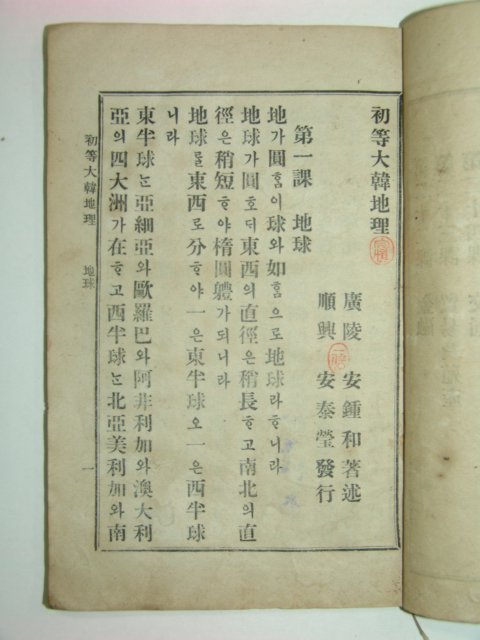 初等大韓地理
廣陵 安鍾和著述
順興 安泰瑩發行
第一課 地球
地가圓ᄒᆞᆷ이球와如ᄒᆞᆷ으로地球라ᄒᆞ니라
地球가圓ᄒᆞ되東西의直徑은稍長ᄒᆞ고南北의直
徑은稍短ᄒᆞ야楕圓軆가되니라
地球ᄅᆞᆯ東西로分ᄒᆞ야一은東半球오一은西半球
니라
東半球ᄂᆞᆫ亞細亞와歐羅巴와阿非利加와澳大利
亞의四大洲가在ᄒᆞ고西半球ᄂᆞᆫ北亞美利加와南
初等大韓地理 地球 一